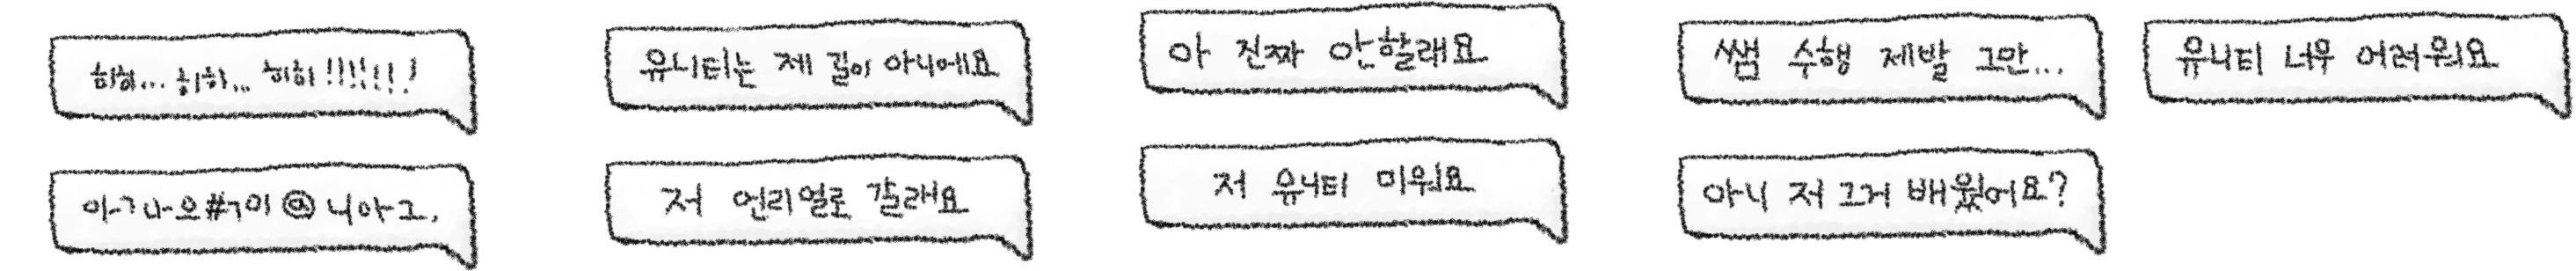 히히... 히히... 히히!!!!!!
유니티는 제 길이 아니에요
아 진짜 안할래요
쌤 수행 제발 그만...
유니티 너무 어려워요
아ㄱ나으#ㄱ이@니아그.
저 언리얼로 갈래요
저 유니티 미워요
아니 저 그거 배웠어요?